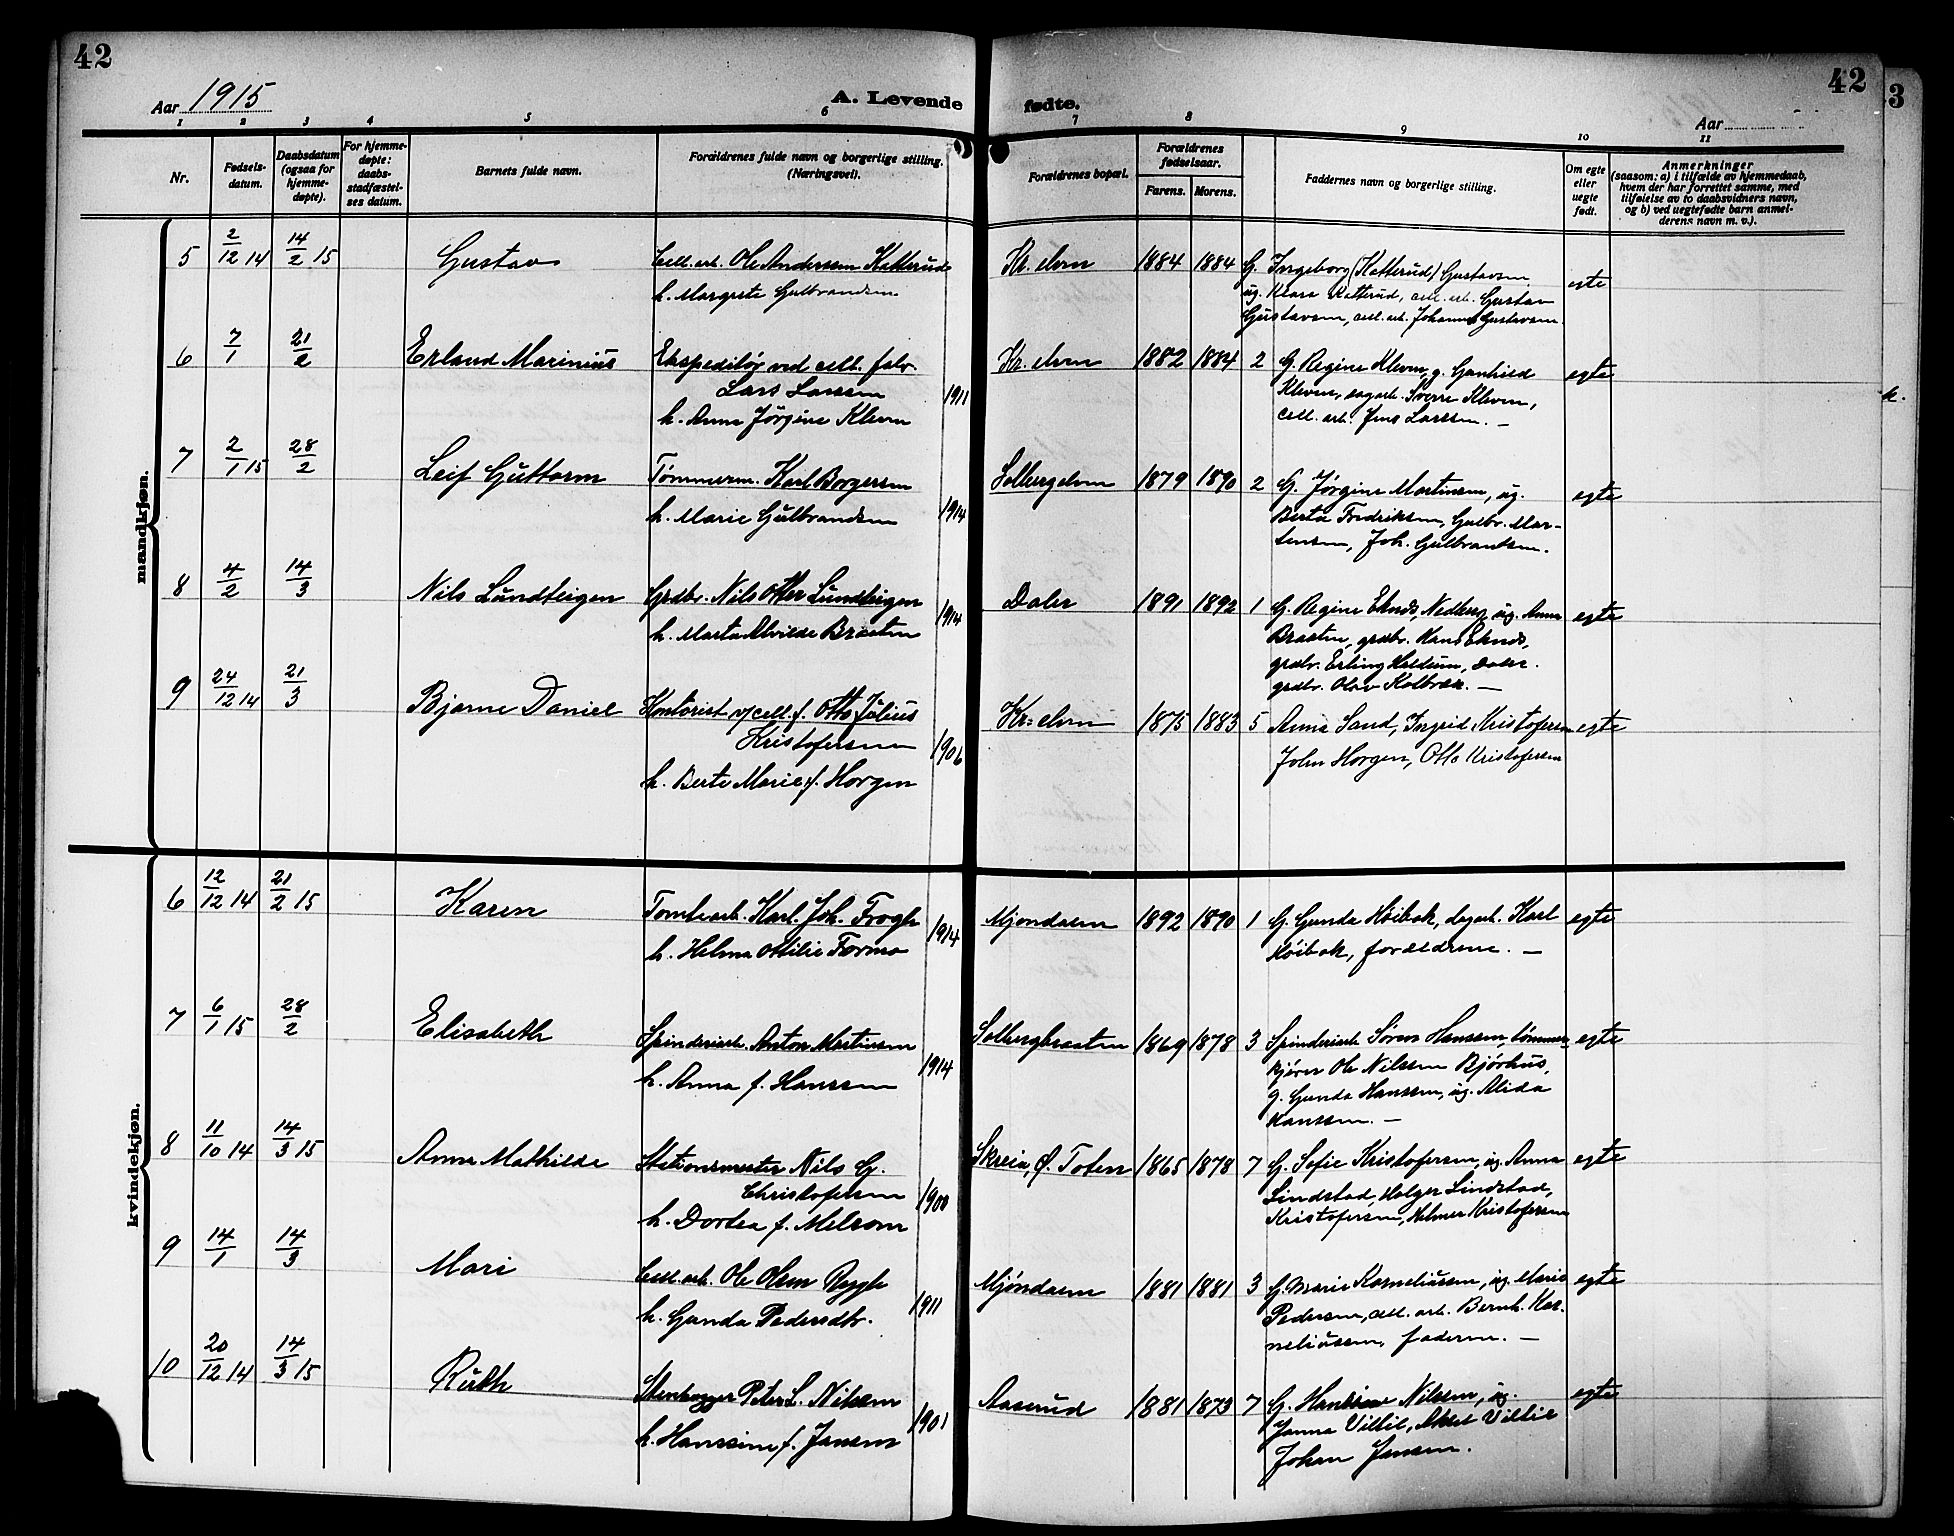 42
Aar 1915
A. Levende
fødte.
42
Aar
3
1 2 3 4 5 6 7 8 9 10 11
Nr.
Fødsels-
datum.
Daabsdatum
(ogsaa for
hjemme-
døpte).
For hjemme-
døpte:
daabs-
stadfæstel-
ses datum.
Barnets fulde navn.
Forældrenes fulde navn og borgerlige stilling.
(Næringsvei).
Forældrenes bopæl.
Forældrenes
fødselsaar.
Farens. Morens.
Faddernes navn og borgerlige stilling.
Om egte
eller
uegte
født.
Anmerkninger
(saasom: a) i tilfælde av hjemmedaab,
hvem der har forrettet samme, med
tilføielse av to daabsvidners navn,
og b) ved uegtefødte barn anmel-
derens navn m. v.).
mandkjøn.
5 2/12 14 14/2 15 Gustav Cell. arb. Ole Anderssen Katterud Kr. elven 1884 1884 G. Ingeborg (Katterud) Gustavsen egte
h. Margrete Gulbrandsen ug. Klara Katterud, cell. arb. Gustav
Gustavsen, cell. arb. Johannes Gustavsen.
6 7/1 21/2 Erland Marinius Ekspeditør ved cell. fabr. Kr. elven 1882 1884 2 G. Regine Kleven, g. Gunhild egte
Lars Larssen 1911 Kleven, sagarb. Sverre Kleven,
h. Anna Jørgine Kleven cell. arb. Jens Larssen. —
7 2/1 15 28/2 Leif Guttorm Tømmerm. Karl Borgersen Solbergelven 1879 1890 2 G. Jørgine Martinsen, ug. egte
h. Marie Gulbrandsen 1914 Berta Fredriksen, Gulbr. Mar-
tinsen, Joh. Gulbrandsen.
8 4/2 14/3 Nils Lundteigen Grdbr. Nils Otter Lundteigen Daler 1891 1892 1 G. Regine Eknes, Nedberg, ug. Anna egte
h. Marta Alvilde Braaten 1914 Braaten, grdbr. Hans Eknes,
grdbr. Erling Hedum, Daler.
grdbr. Olav Kolbræk. —
9 24/12 14 21/3 Bjarne Daniel Kontorist v/cell. f. Otto Julius Kr. elven 1875 1883 5 Anna Sand, Ingrid Kristofersen egte
Kristofersen 1906 John Horgen, Otto Kristofersen
h. Berte Marie f. Horgen
kvindekjøn.
6 12/12 14 21/2 15 Karen Tomtearb. Karl Joh. Frogh Mjøndalen 1892 1890 1 G. Gunda Høibak, dagarb. Karl egte
h. Helma Ottilie Formo 1914 Høibak, forældrene. —
7 6/1 15 28/2 Elisabeth Spinderiarb. Anton Martinsen Solbergbraaten 1869 1878 3 Spinderiarb. Søren Hanssen, tømmer- egte
h. Anna f. Hanssen 1914 kjører Ole Nilssen Bjørhus,
g. Gunda Hanssen, ug. Alida
Hanssen. —
8 11/10 14 14/3 15 Anna Mathilde Stationsmester Nils G. Skreia, Ø. Toten 1865 1878 7 G. Sofie Kristofersen, ug. Anna egte
Christofersen 1900 Lindstad, Holger Lindstad,
h. Dortea f. Melsom Kristofersen, Helmer Kristofersen
9 14/1 14/3 Mari Cell. arb. Ole Olsen Rygh Mjøndalen 1881 1881 3 G. Marie Korneliussen, ug. Marie egte
h. Gunda Pedersdtr. 1911 Pedersen, cell. arb. Bernh. Kor-
neliussen, faderen. —
10 20/12 14 14/3 15 Ruth Stenhugger Peter L. Nilssen Aaserud 1881 1873 7 G. Hanssine Nilssen, ug. egte
h. Hanssine f. Jansen 1901 Janna Villie, Aksel Villie
Johan Jansen.